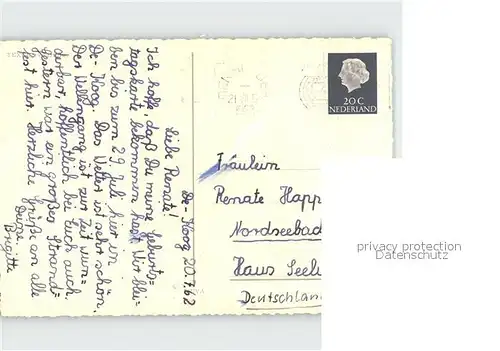 De-Koog 20.7.62
Liebe Renate!
Ich hoffe, daß Du meine Geburts-
tagskarte bekommen hast. Wir blei-
ben bis zum 29. Juli hier in
De-Koog. Das Wetter ist sehr schön.
Der Wellengang ist zur Zeit wun-
derbar, hoffentlich bei Euch auch.
Gestern war ein großes Strand-
fest hier. Herzliche Grüße an alle
Deine
Brigitte
20 C
NEDERLAND
Fräulein
Renate Happ
Nordseebad
Haus Seel
Deutschland
privacy protection
Datenschutz